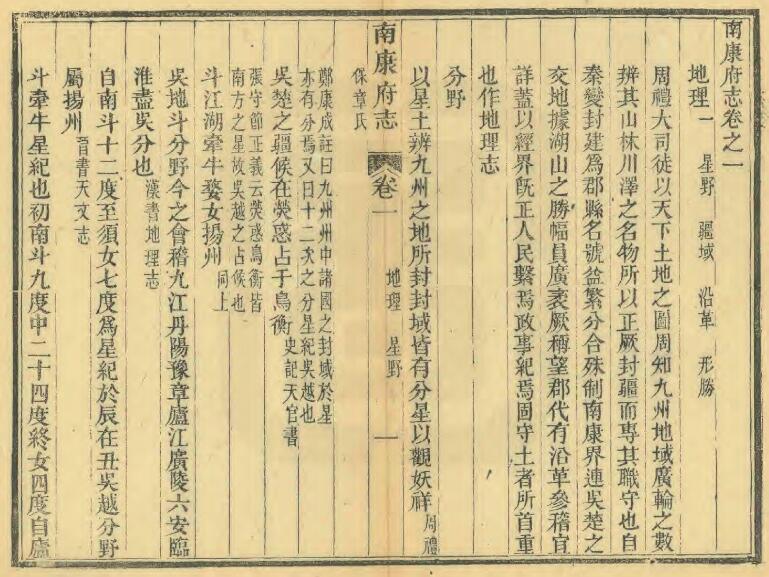 南康府志卷之一
地理一 星野 疆域 沿革 形勝
周禮大司徒以天下土地之圖周知九州地域廣輪之數
辨其山林川澤之名物所以正厥封疆而專其職守也自
秦變封建爲郡縣名號益繁分合殊制南康界連吳楚之
交地據湖山之勝幅員廣袤厥稱望郡代有沿革參稽宜
詳蓋以經界旣正人民繫焉政事紀焉固守土者所首重
也作地理志
分野
以星土辨九州之地所封封域皆有分星以觀妖祥 周禮
保章氏
南康府志 卷一 地理 星野 一
鄭康成註曰九州州中諸國之封域於星
亦有分焉又曰十二次之分星紀吳越也
吳楚之疆候在熒惑占于鳥衡 史記天官書
張守節正義云熒惑鳥衡皆
南方之星故吳越之占候也
斗江湖牽牛婺女揚州 同上
吳地斗分野今之會稽九江丹陽豫章廬江廣陵六安臨
淮盡吳分也 漢書地理志
自南斗十二度至須女七度爲星紀於辰在丑吳越分野
屬揚州 晉書天文志
斗牽牛星紀也初南斗九度中二十四度終女四度自廬